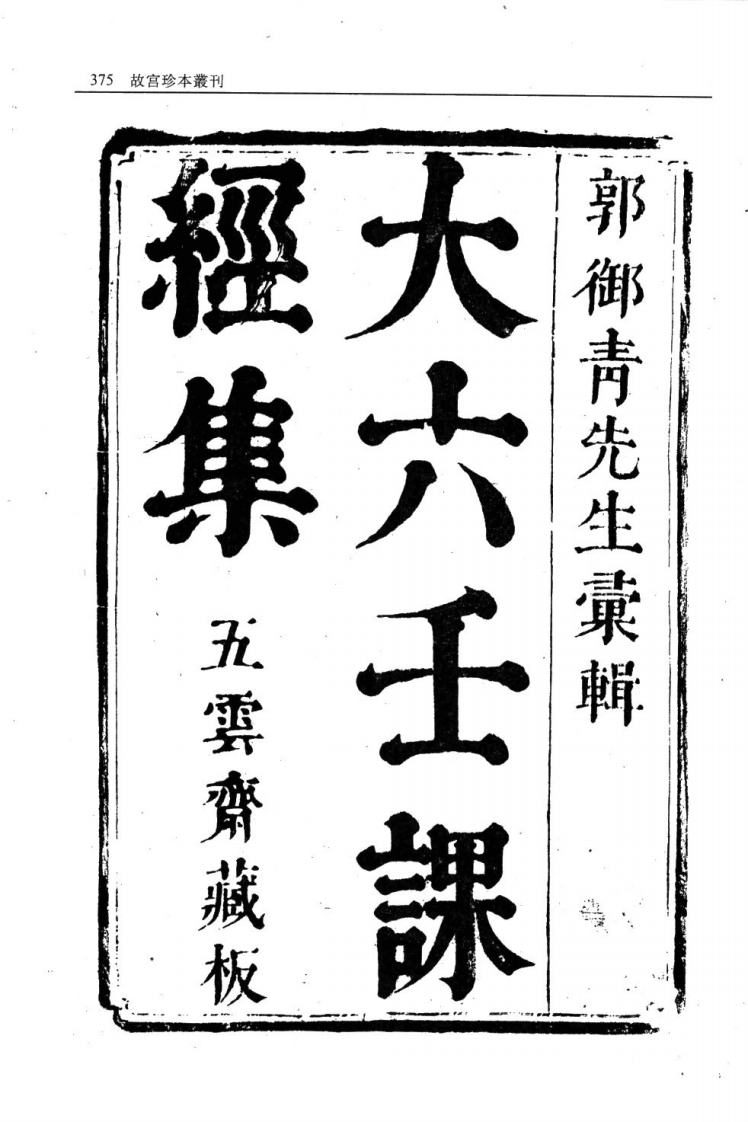 375 故宫珍本叢刊
郭御青先生彙輯
大六壬課
經集
五雲齋藏板